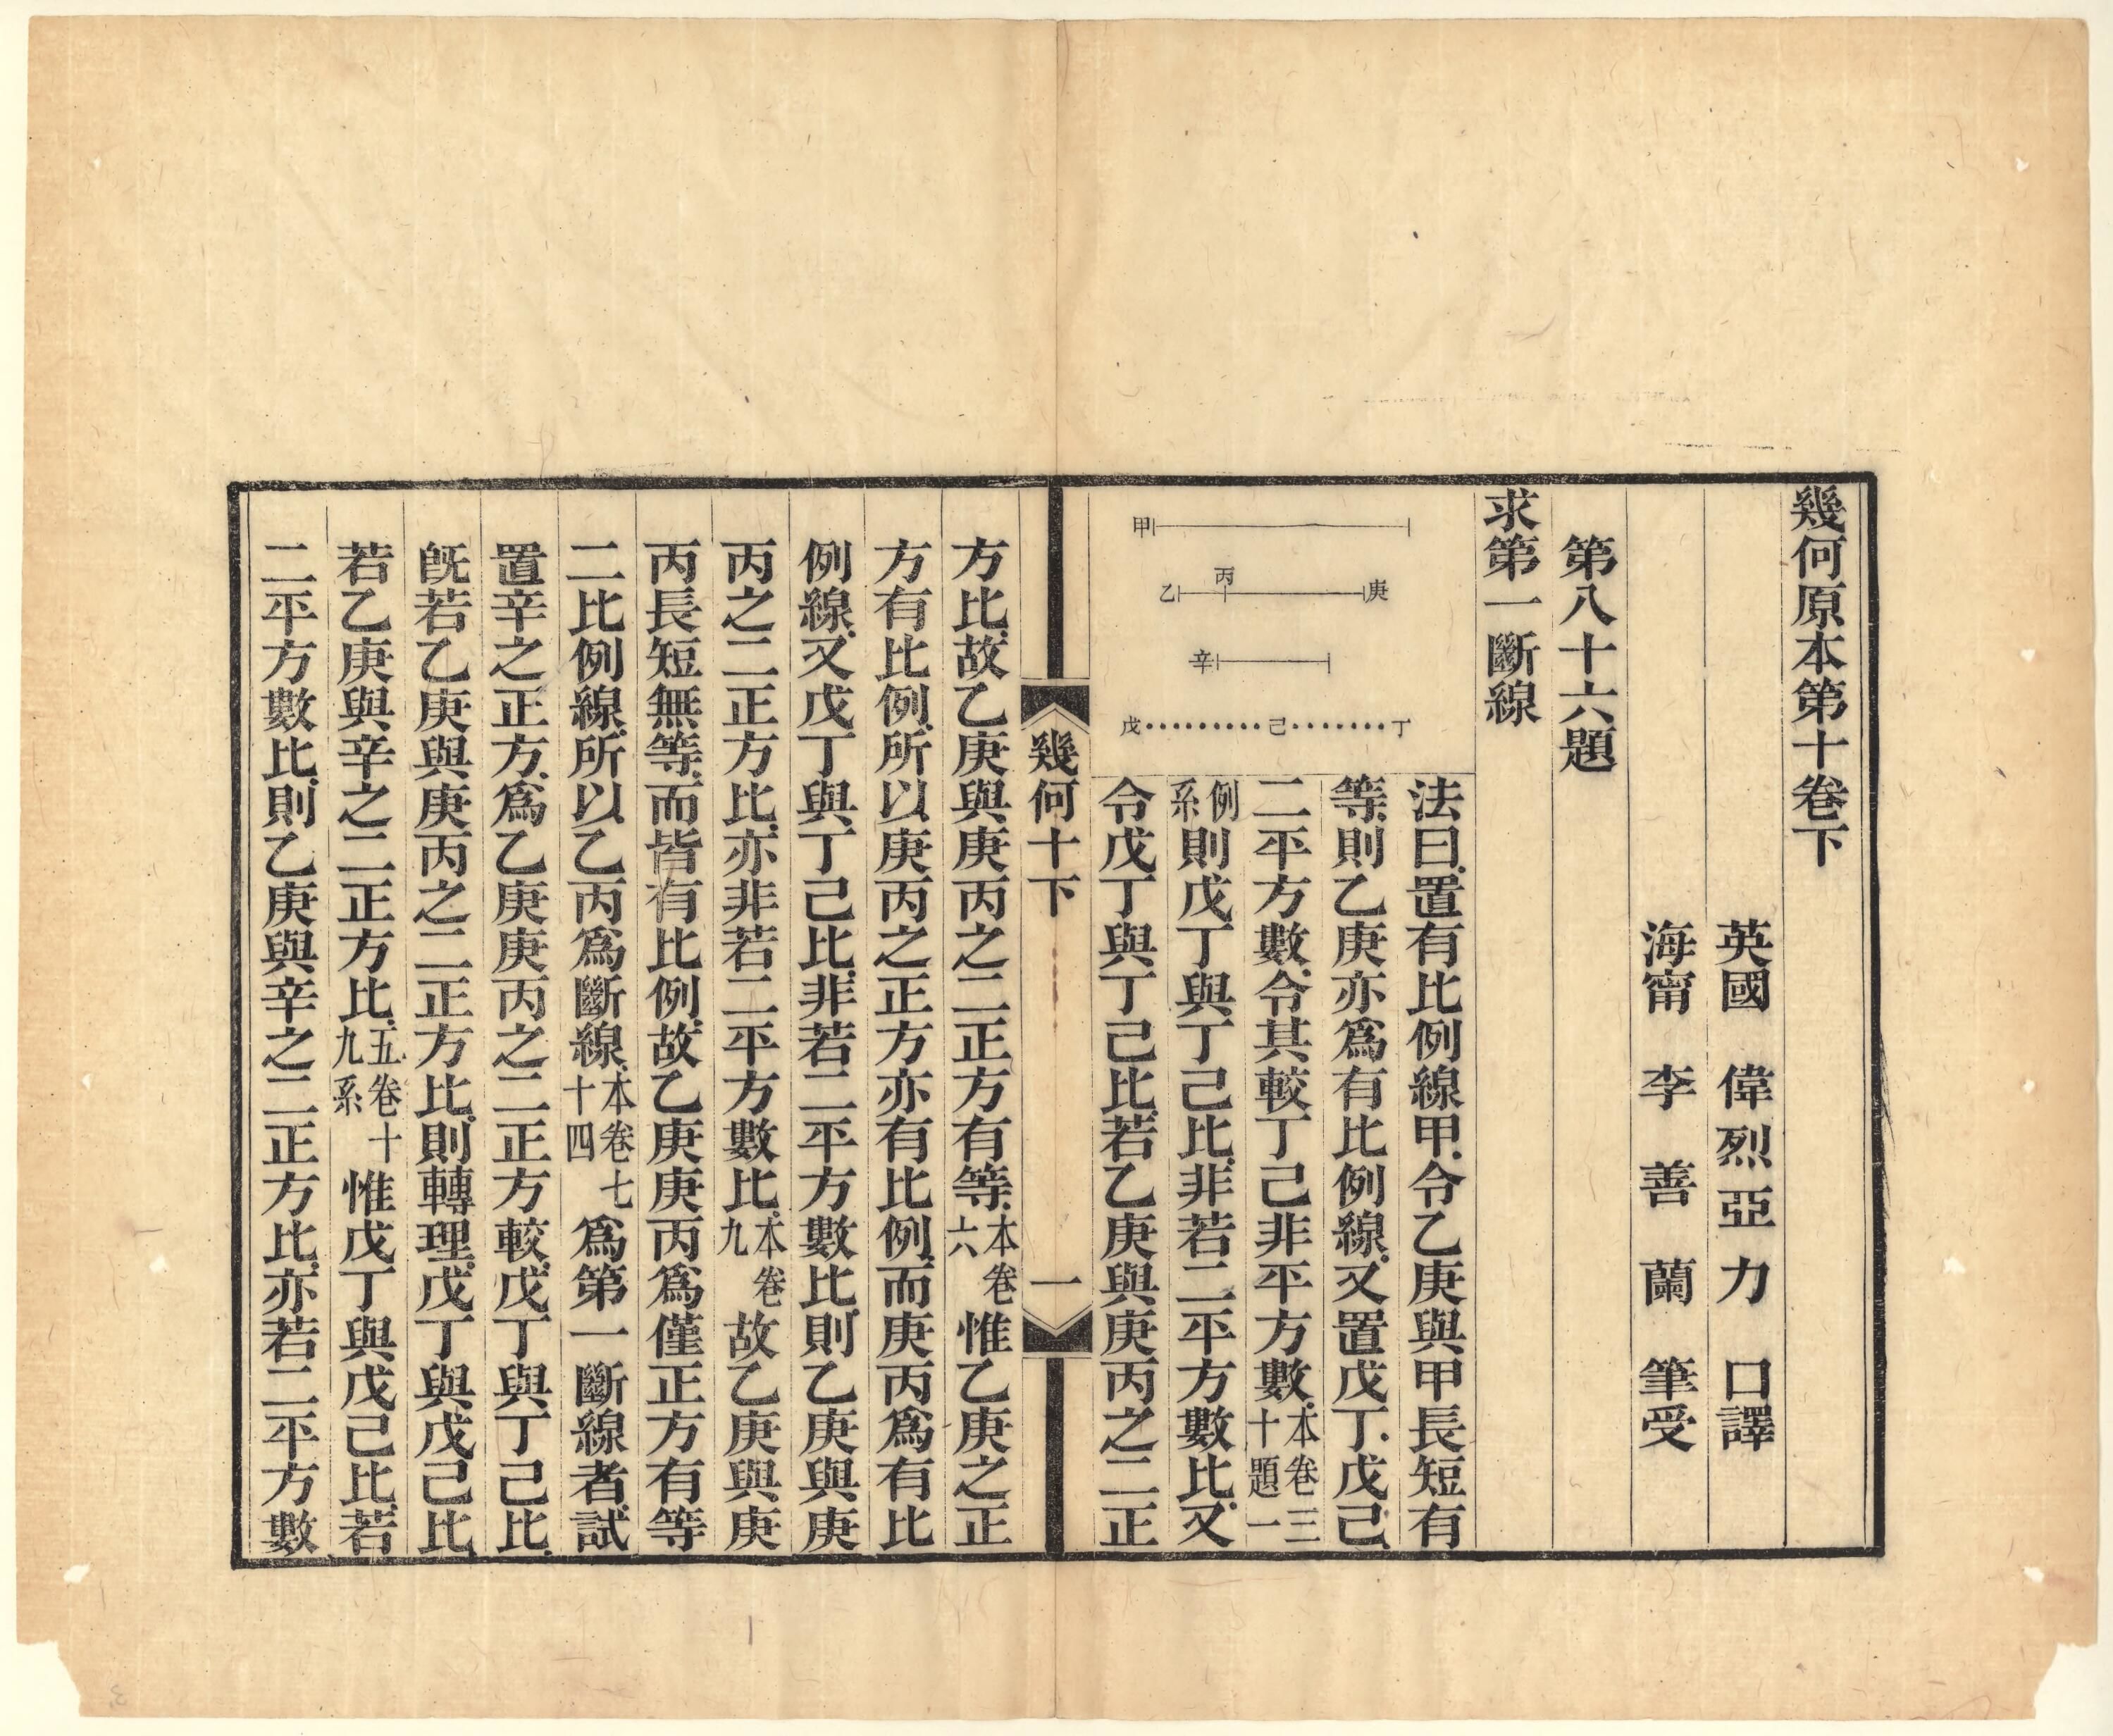 幾何原本第十卷下
英國 偉烈亞力 口譯
海甯 李善蘭 筆受
第八十六題
求第一斷線
甲
乙 丙 庚
辛
戊 己 丁
法曰置有比例線甲令乙庚與甲長短有
等則乙庚亦爲有比例線又置戊丁戊己
二平方數令其較丁己非平方數本卷三十題一
例系則戊丁與丁己比非若二平方數比又
令戊丁與丁己比若乙庚與庚丙之二正
幾何十下 一
方比故乙庚與庚丙之二正方有等本卷六惟乙庚之正
方有比例所以庚丙之正方亦有比例而庚丙爲有比
例線又戊丁與丁己比非若二平方數比則乙庚與庚
丙之二正方比亦非若二平方數比本卷九故乙庚與庚
丙長短無等而皆有比例故乙庚庚丙爲僅正方有等
二比例線所以乙丙爲斷線本卷七十四爲第一斷線者試
置辛之正方爲乙庚庚丙之二正方較戊丁與丁己比
旣若乙庚與庚丙之二正方比則轉理戊丁與戊己比
若乙庚與辛之二正方比五卷十九系惟戊丁與戊己比若
二平方數比則乙庚與辛之二正方比亦若二平方數